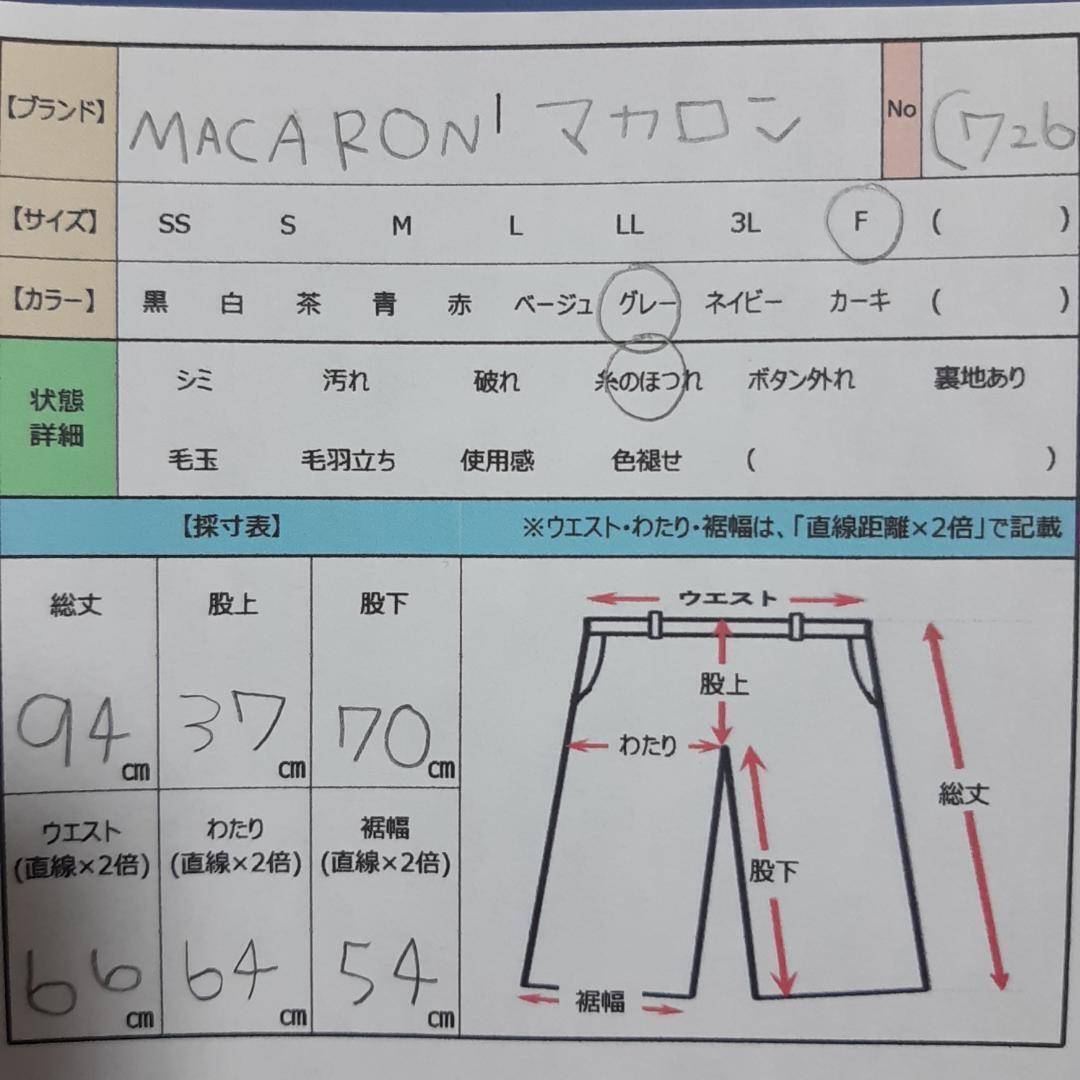 【ブランド】 MACARON' マカロン No (726
【サイズ】 SS S M L LL 3L F ( )
【カラー】 黒 白 茶 青 赤 ベージュ グレー ネイビー カーキ ( )
状態詳細 シミ 汚れ 破れ 糸のほつれ ボタン外れ 裏地あり
毛玉 毛羽立ち 使用感 色褪せ ( )
【採寸表】 ※ウエスト・わたり・裾幅は、「直線距離×2倍」で記載
総丈 股上 股下
94cm 37cm 70cm
ウエスト わたり 裾幅
(直線×2倍) (直線×2倍) (直線×2倍)
66cm 64cm 54cm
ウエスト
股上
わたり
総丈
股下
裾幅